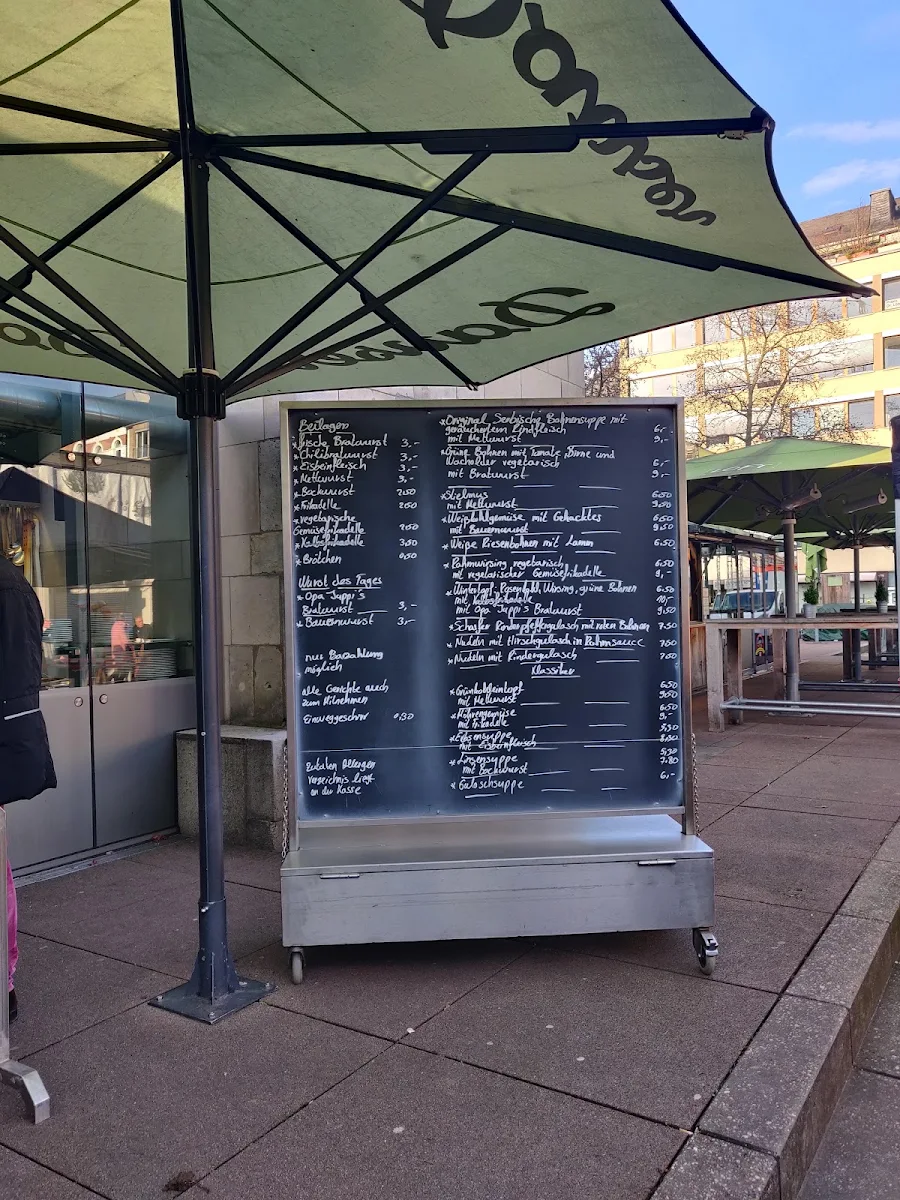 Beilagen
* frische Bratwurst 3,-
* Chilibratwurst 3,-
* Eisbeinfleisch 3,-
* Mettwurst 3,-
* Bockwurst 250
* Frikadelle 250
* vegetarische
Gemüsefrikadelle 250
* Kalbsfrikadelle 350
* Brötchen 0,50
Wurst des Tages
* Opa Jeppi's
Bratwurst 3,-
* Bauernwurst 3,-
nur Barzahlung
möglich
alle Gerichte auch
zum Mitnehmen
Einweggeschirr 0,30
Zutaten Allergen
verzeichnis liegt
an der Kasse
* Original Serbische Bohnensuppe mit
geräuchertem Endfleisch 6,-
mit Mettwurst 9,-
* Grüne Bohnen mit Tomate, Birne und
Wacholder vegetarisch 6,-
mit Bratwurst 9,-
* Stielmus 650
mit Mettwurst 950
* Weißkohlgemüse mit Gehacktes 650
mit Bauernwurst 950
* Weiße Riesenbohnen mit Lamm 650
* Rahmwirsing vegetarisch 650
mit vegetarischer Gemüsefrikadelle 9,-
* Wintertopf Rosenkohl, Wirsing, grüne Bohnen 650
mit Kalbsfrikadelle 10,-
mit Opa Jeppi's Bratwurst 950
* Scharfer Rinderpfeffergulasch mit roten Bohnen 750
* Nudeln mit Hirschgulasch in Rahmsauce 750
* Nudeln mit Rindergulasch 750
Klassiker
* Grünkohleintopf 650
mit Mettwurst 950
* Möhrengemüse 650
mit Frikadelle 9,-
* Erbsensuppe 5,30
mit Eisbeinfleisch 8,30
* Linsensuppe 5,30
mit Bockwurst 7,80
* Gulaschsuppe 6,-